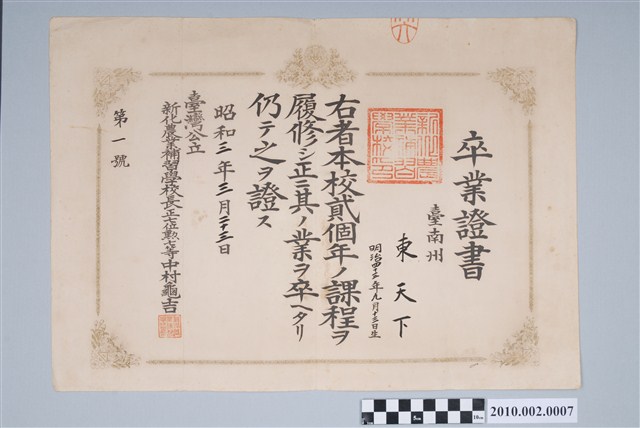 卒業證書
臺南州
東天下
明治四十二年九月十三日生
右者本校貳個年ノ課程ヲ
履修シ正ニ其ノ業ヲ卒ヘタリ
仍テ之ヲ證ス
昭和三年三月二十三日
臺灣公立
新化農業補習學校長正七位勲七等中村龜吉
第一號
2010.002.0007